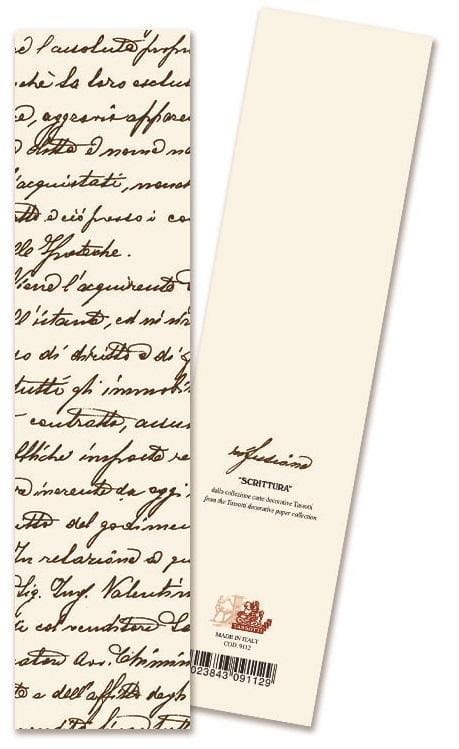 è l'assoluta propri
chè la loro esclus
e, aggravio appare
o ditta è nome no
acquistati, nonos
tto e ciò presso i co
lle Ipoteche.
Viene l'acquirente
ll'istante, ed
so di diritto e di g
tutti gli immobil
contratto, assu
ittiche imposte re
inerente da oggi
tto del godimen
In relazione a qu
Sig. Ing. Valentin
il col venditore
Av. Chimin
e dell'affitto degli
"SCRITTURA"
dalla collezione carte decorative Tassotti
from the Tassotti decorative paper collection
TASSOTTI
MADE IN ITALY
COD. 9112
023843 091129